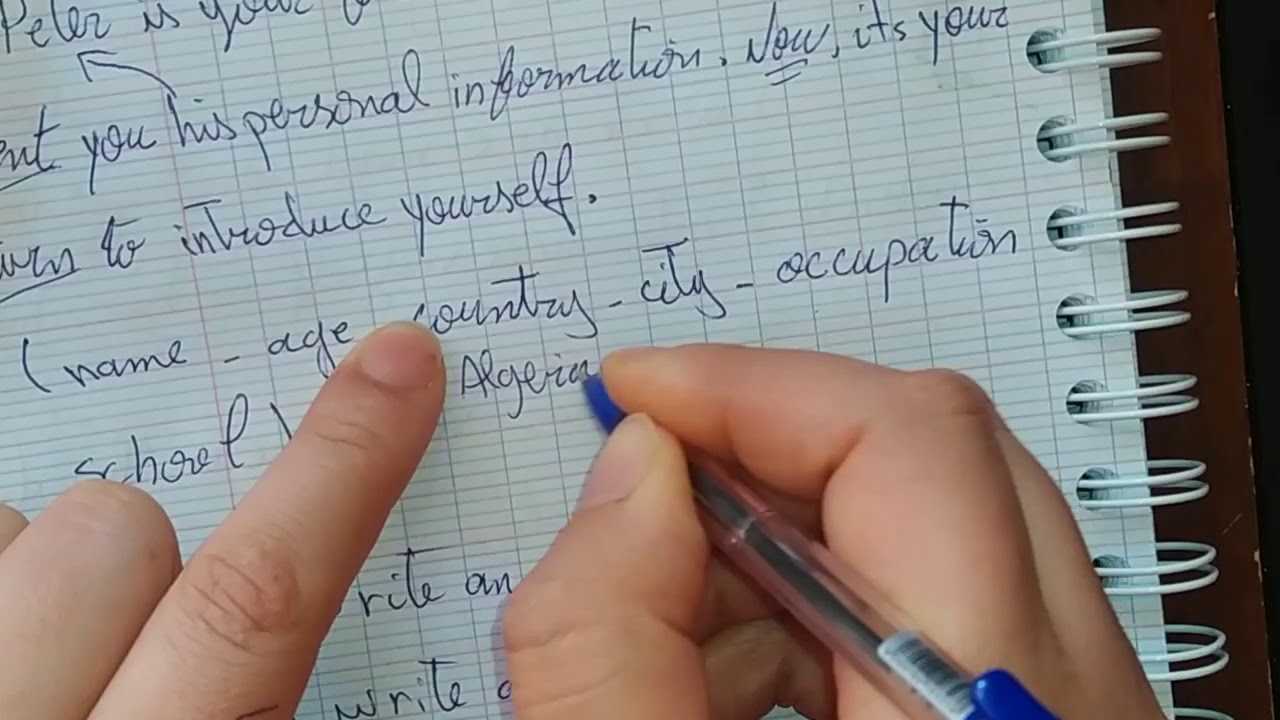 Peter is your
ent you his personal information. Now, its your
urn to introduce yourself.
(name - age country - city - occupation
Algeria
school)
rite an
write